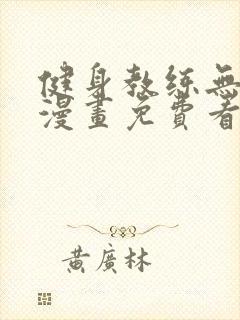 健身教练無
漫畫免費看
黃廣林